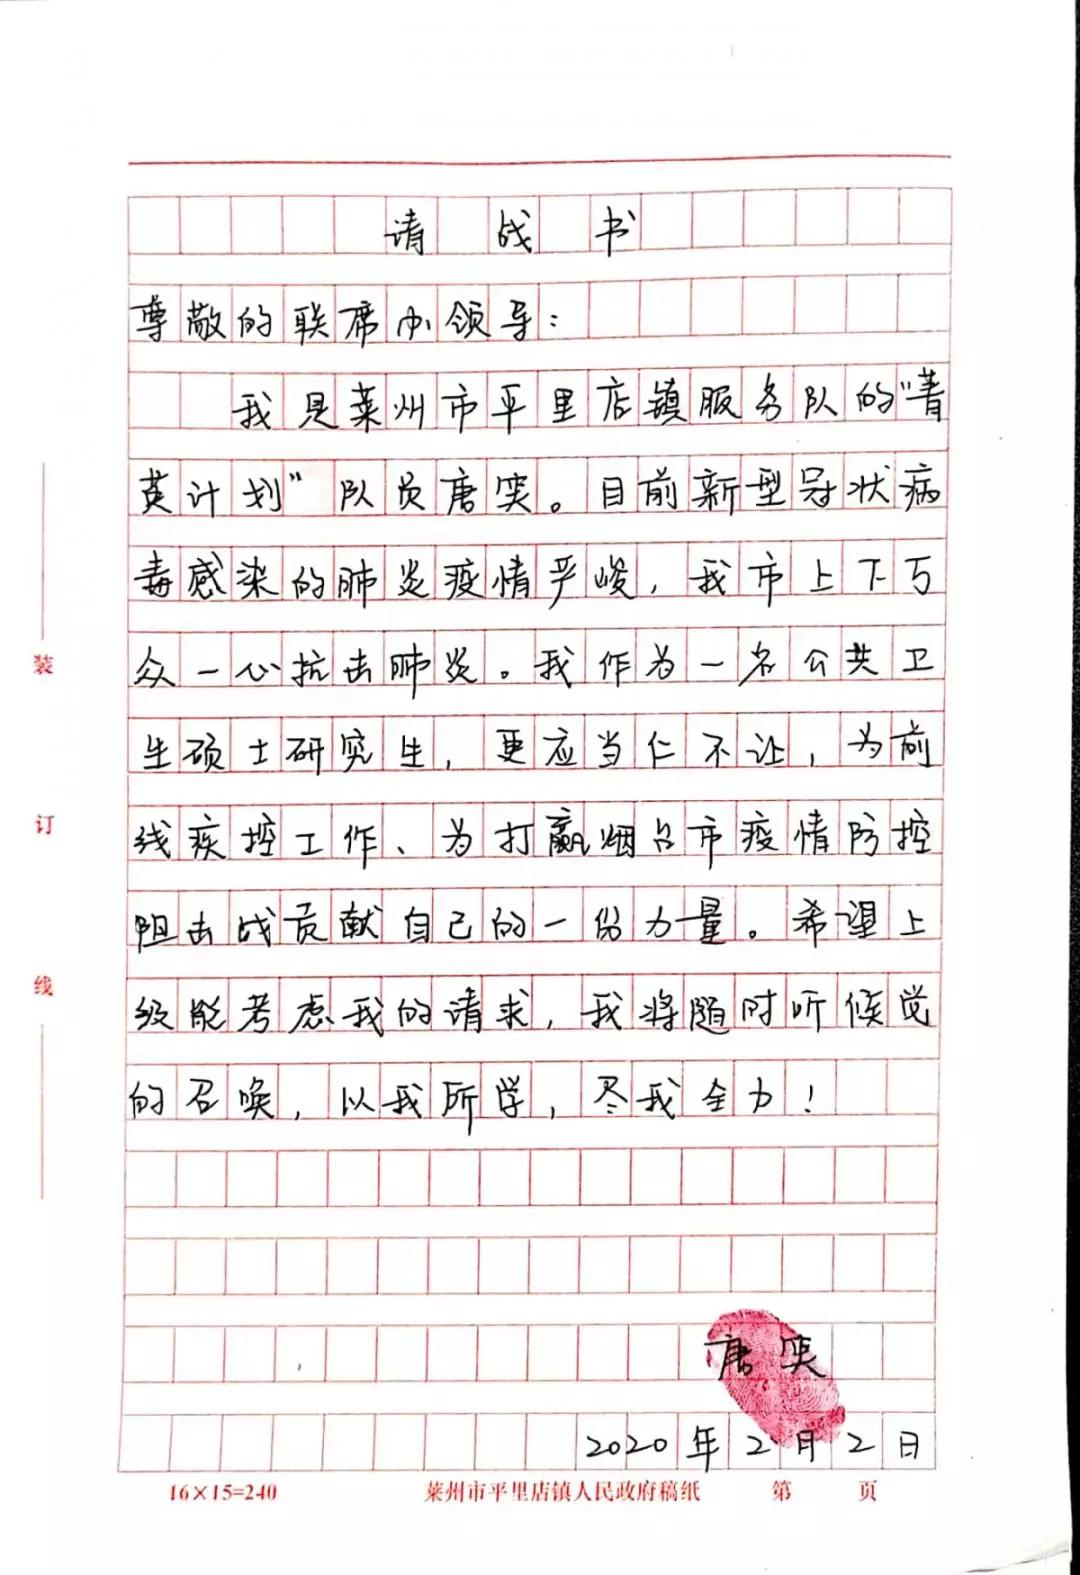 请战书
尊敬的联席办领导：
我是莱州市平里店镇服务队的“菁
英计划”队员唐笑。目前新型冠状病
毒感染的肺炎疫情严峻，我市上下万
众一心抗击肺炎。我作为一名公共卫
生硕士研究生，更应当仁不让，为前
线疾控工作、为打赢烟台市疫情防控
阻击战贡献自己的一份力量。希望上
级能考虑我的请求，我将随时听候党
的召唤，以我所学，尽我全力！
唐笑
2020年2月2日
装
订
线
16×15=240 莱州市平里店镇人民政府稿纸 第 页